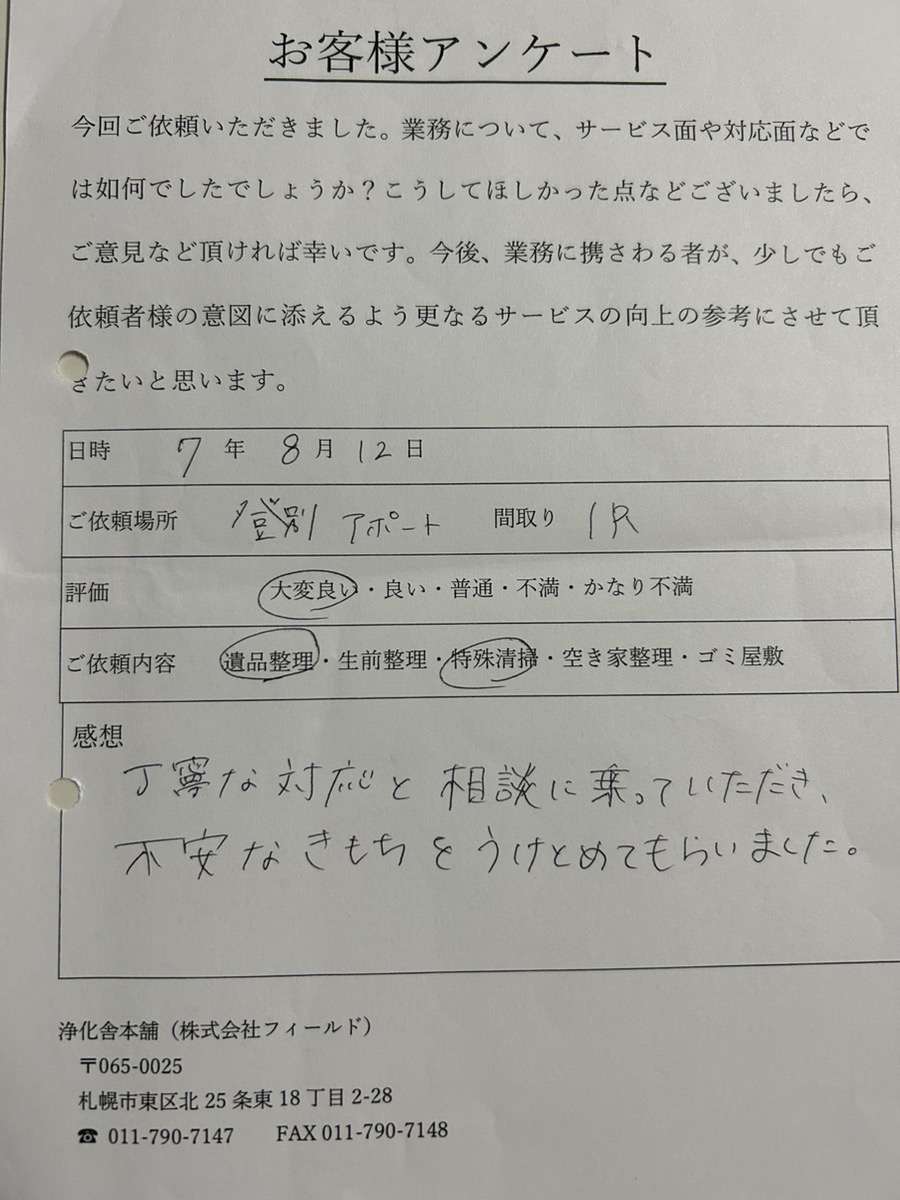 お客様アンケート
今回ご依頼いただきました。業務について、サービス面や対応面などで
は如何でしたでしょうか?こうしてほしかった点などございましたら、
ご意見など頂ければ幸いです。今後、業務に携さわる者が、少しでもご
依頼者様の意図に添えるよう更なるサービスの向上の参考にさせて頂
きたいと思います。
日時 7年 8月 12日
ご依頼場所 登別 アポート 間取り 1R
評価 大変良い・良い・普通・不満・かなり不満
ご依頼内容 遺品整理・生前整理・特殊清掃・空き家整理・ゴミ屋敷
感想
丁寧な対応と相談に乗っていただき、
不安なきもちをうけとめてもらいました。
浄化舎本舗(株式会社フィールド)
〒065-0025
札幌市東区北25条東18丁目2-28
☎ 011-790-7147 FAX 011-790-7148